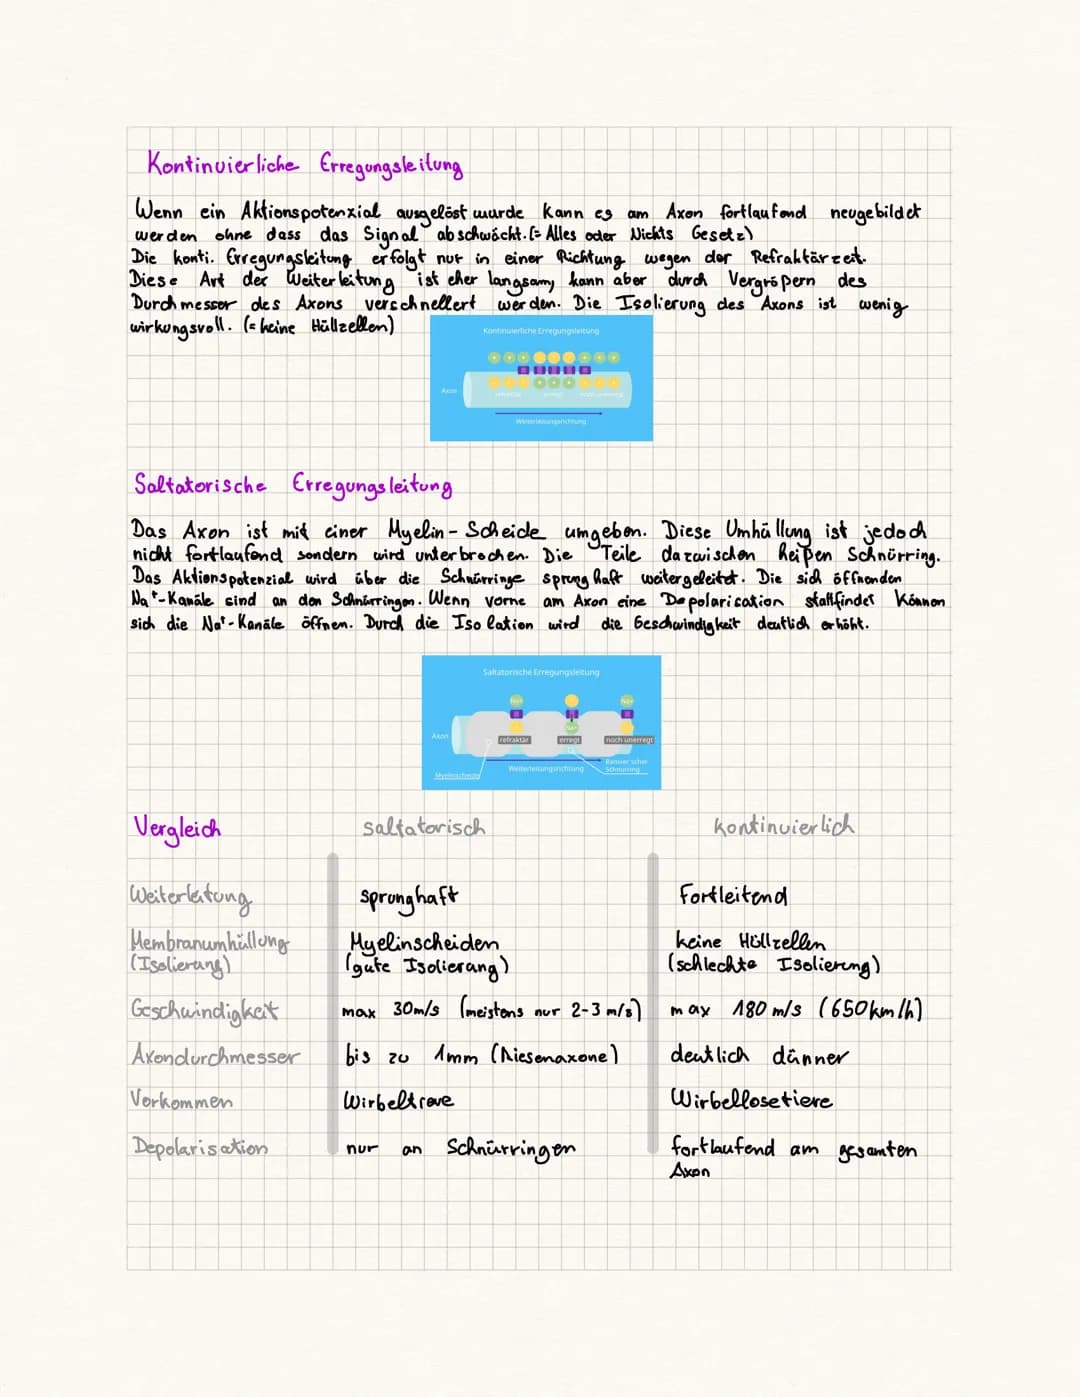 Kontinuierliche Erregungsleitung
Wenn ein Aktionspotenzial ausgelöst wurde kann es am Axon fortlaufend neugebildet
werden ohne dass das Signal abschwächt. (= Alles oder Nichts Gesetz)
Die konti. Erregungsleitung erfolgt nur in einer Richtung wegen der Refraktärzeit.
Diese Art der Weiterleitung ist eher langsam, kann aber durch Vergrößern des
Durchmesser des Axons verschnellert werden. Die Isolierung des Axons ist wenig
wirkungsvoll. (= keine Hüllzellen)
Kontinuierliche Erregungsleitung
Axon
refraktär erregt noch unerregt
Weiterleitungsrichtung
Saltatorische Erregungsleitung
Das Axon ist mit einer Myelin-Scheide umgeben. Diese Umhüllung ist jedoch
nicht fortlaufend sondern wird unterbrochen. Die Teile dazwischen heißen Schnürring.
Das Aktionspotenzial wird über die Schnürringe sprunghaft weitergeleitet. Die sich öffnenden
Na⁺-Kanäle sind an den Schnürringen. Wenn vorne am Axon eine Depolarisation stattfindet können
sich die Na⁺-Kanäle öffnen. Durch die Isolation wird die Geschwindigkeit deutlich erhöht.
Saltatorische Erregungsleitung
Na+ Na+
Na+
Axon
refraktär erregt noch unerregt
Weiterleitungsrichtung
Ranvier'scher
Schnürring
Myelinscheide
Vergleich saltatorisch kontinuierlich
Weiterleitung sprunghaft Fortleitend
Membranumhüllung Myelinscheiden keine Hüllzellen
(Isolierung) (gute Isolierung) (schlechte Isolierung)
Geschwindigkeit max 30m/s (meistens nur 2-3 m/s) max 180 m/s (650km/h)
Axondurchmesser bis zu 1mm (Riesenaxone) deutlich dünner
Vorkommen Wirbeltiere Wirbellosetiere
Depolarisation nur an Schnürringen fortlaufend am gesamten
Axon